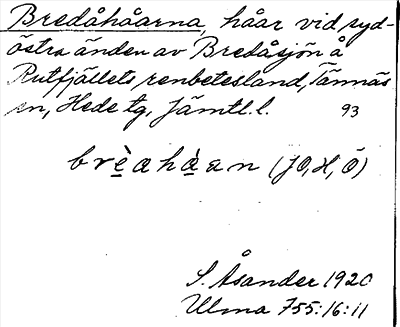 Bredåhåarna, håar vid syd-
östra änden av Bredåsjön å
Rutfjällets renbetesland, Tännäs
sn, Hede tg, Jämtl. l. 93
brèahàan (JO, H, Ö)
S. Åsander 1920
Ulma 755:16:11